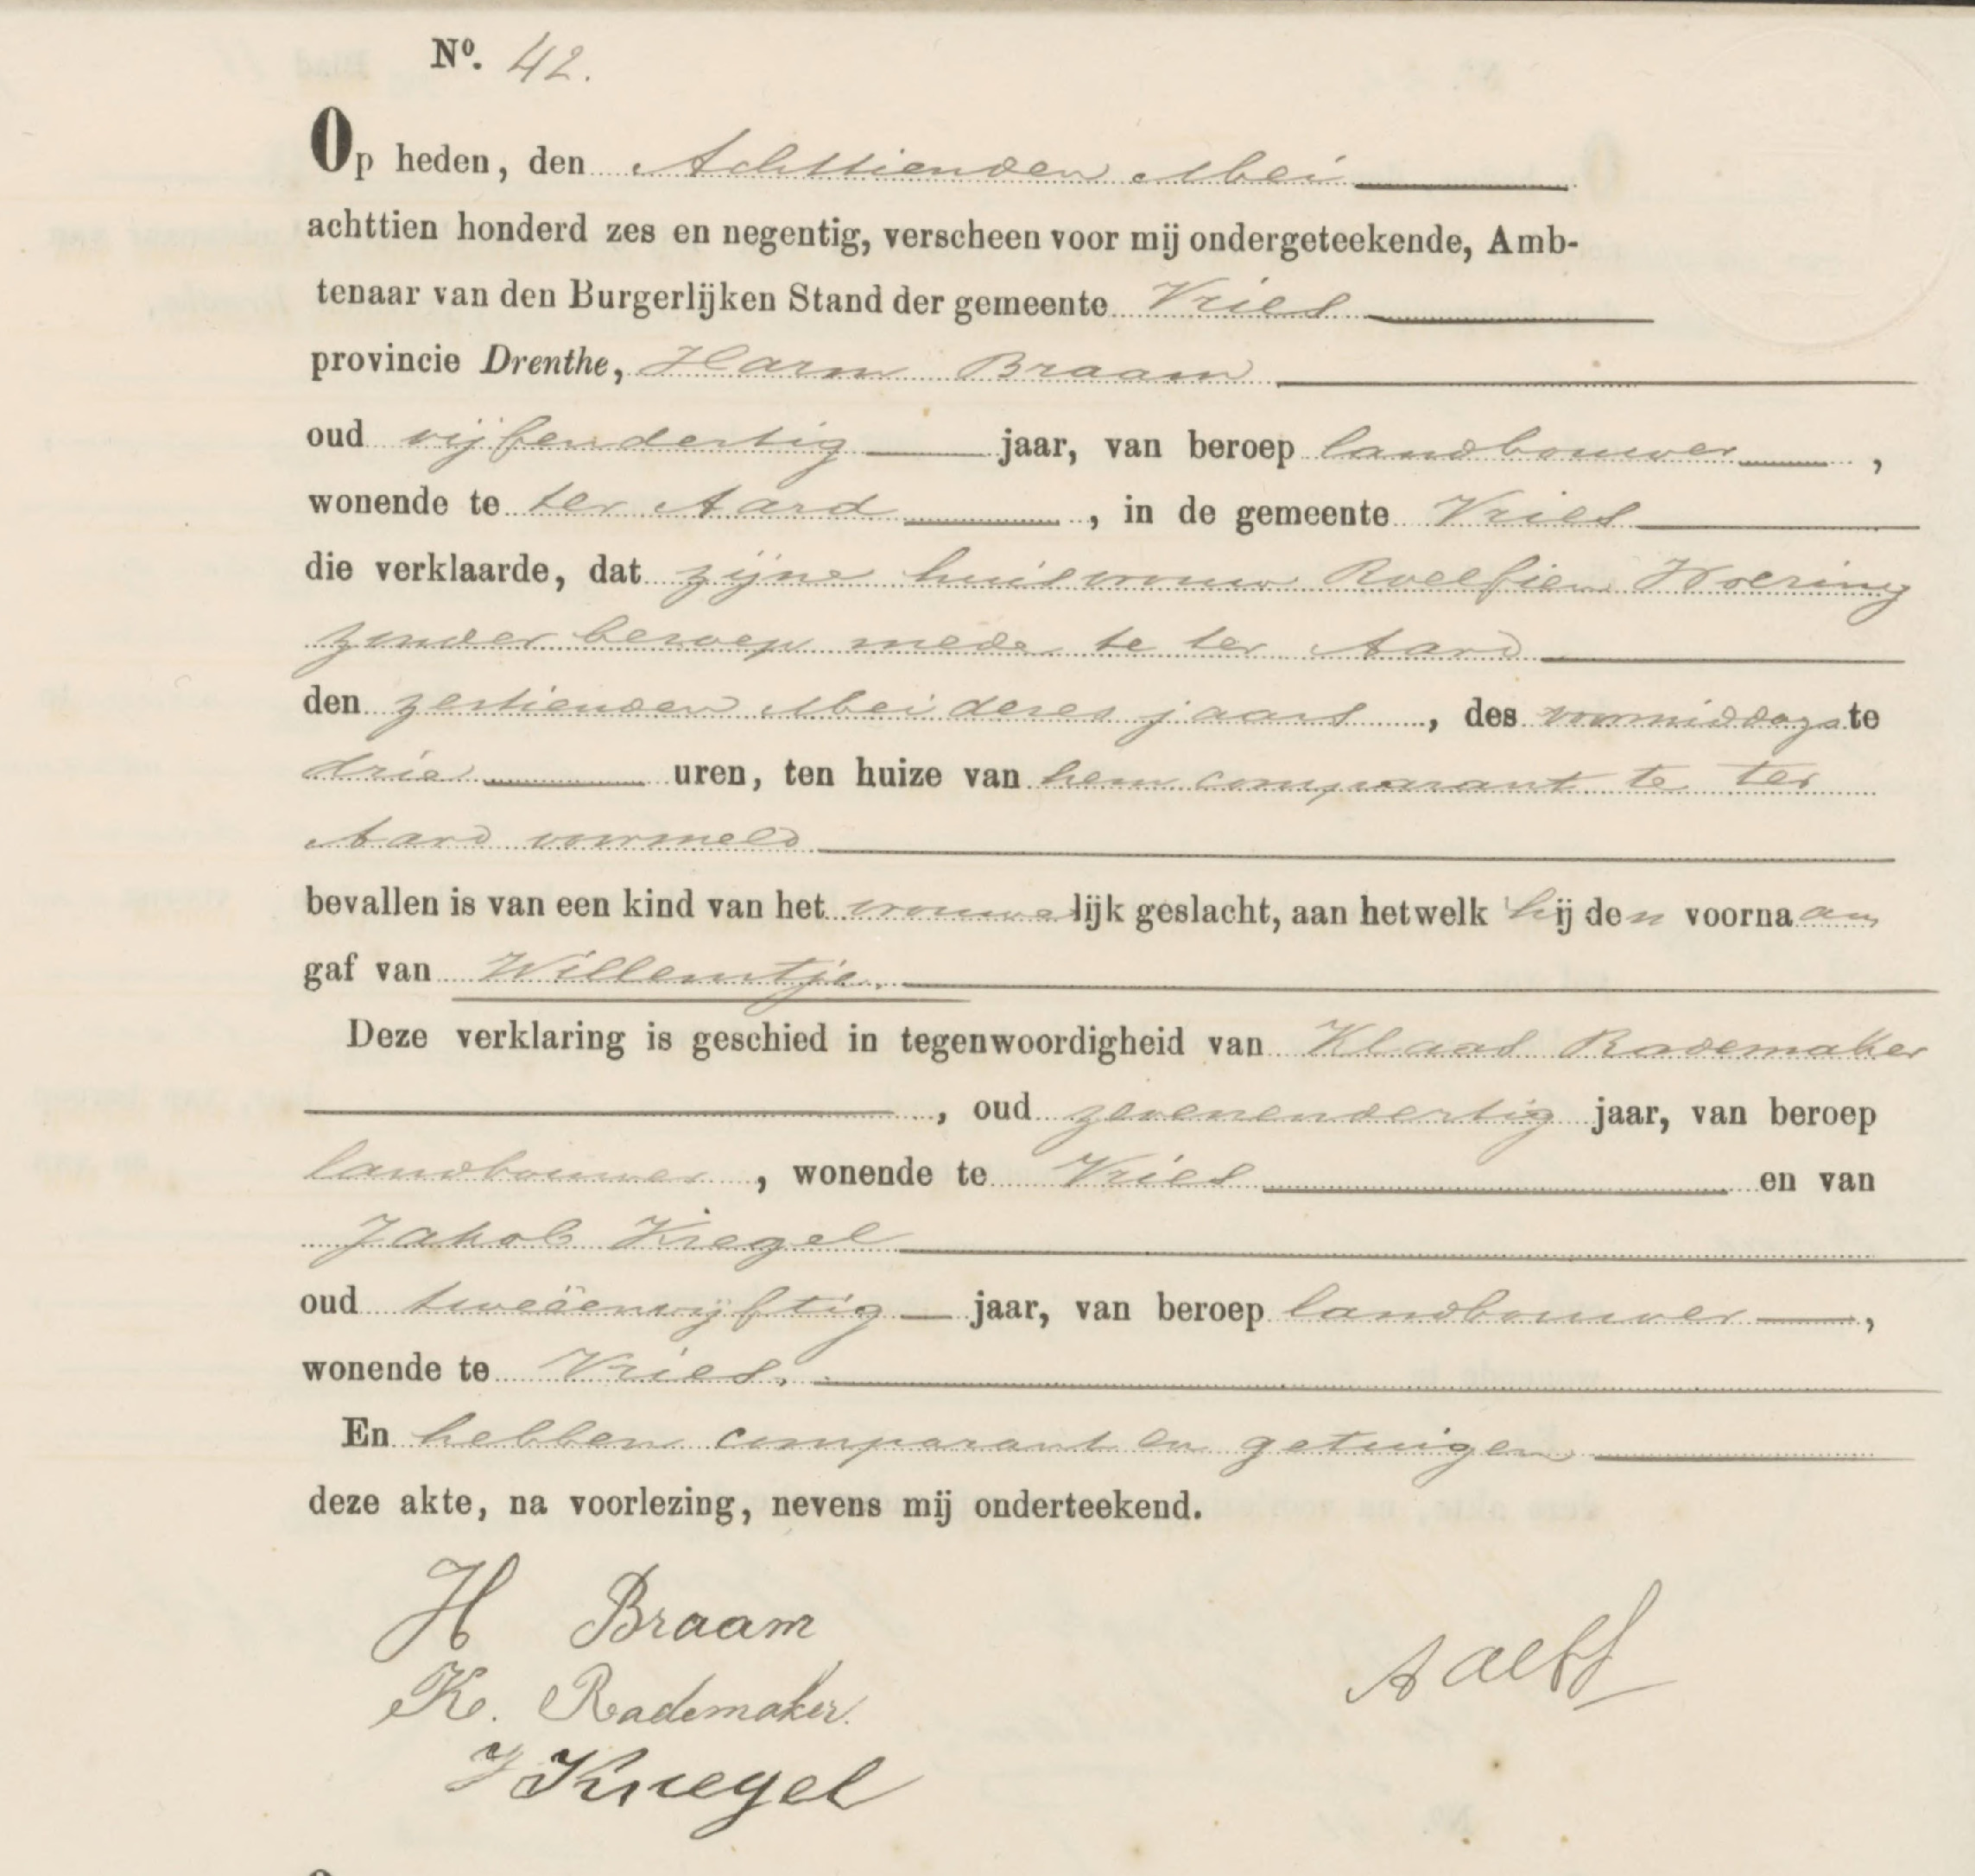 Nº. 42.
Op heden, den Achttienden Mei
achttien honderd zes en negentig, verscheen voor mij ondergeteekende, Amb-
tenaar van den Burgerlijken Stand der gemeente Vries
provincie Drenthe, Harm Braam
oud vijfendertig jaar, van beroep landbouwer,
wonende te ter Aard, in de gemeente Vries
die verklaarde, dat zijne huisvrouw Roelfien Hoering
zonder beroep mede te ter Aard
den zestienden Mei dezes jaars, des voormiddags te
drie uren, ten huize van hem comparant te ter
Aard voormeld
bevallen is van een kind van het vrouwelijk geslacht, aan hetwelk hij den voornaam
gaf van Willemtje.
Deze verklaring is geschied in tegenwoordigheid van Klaas Rademaker
, oud zevenendertig jaar, van beroep
landbouwer, wonende te Vries en van
Jakob Kregel
oud tweëenvijftig jaar, van beroep landbouwer,
wonende te Vries.
En hebben comparant en getuigen
deze akte, na voorlezing, nevens mij onderteekend.
H Braam
K. Rademaker.
J Kregel